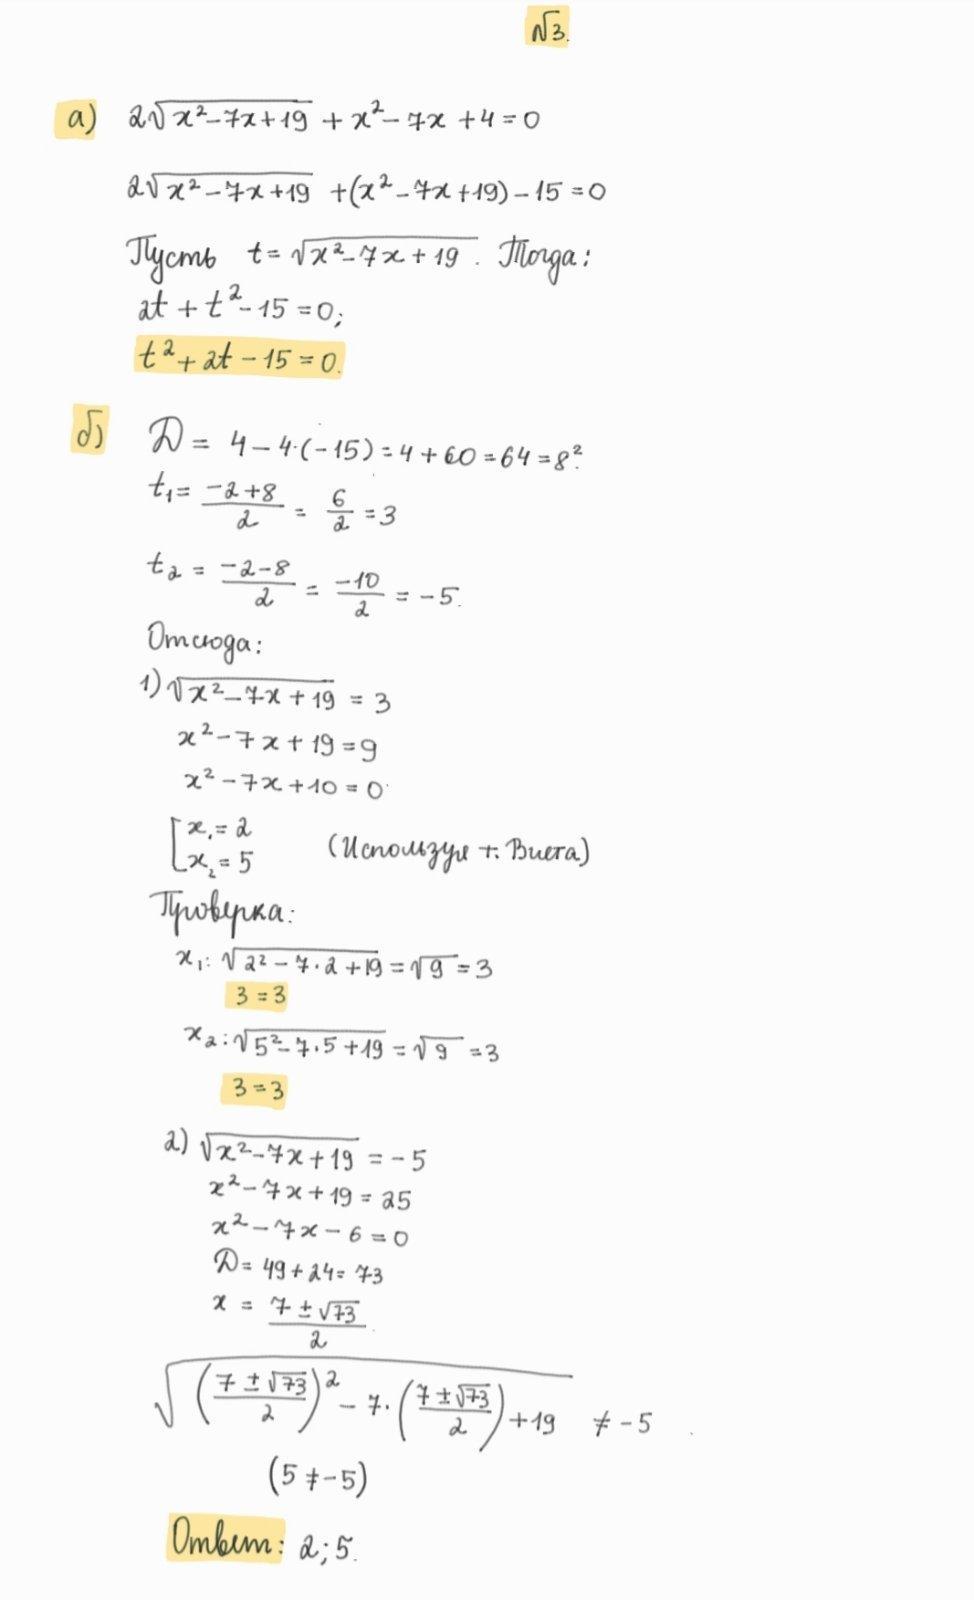 √3.
а) 2√(x²-7x+19) + x²-7x+4=0
2√(x²-7x+19) +(x²-7x+19)-15=0
Пусть t=√(x²-7x+19). Тогда:
2t+t²-15=0;
t²+2t-15=0.
б) D = 4-4·(-15)=4+60=64=8².
t₁= (-2+8)/2 = 6/2 =3
t₂ = (-2-8)/2 = -10/2 = -5.
Отсюда:
1) √(x²-7x+19) = 3
x²-7x+19=9
x²-7x+10=0
[x₁=2
x₂=5 (Используя т. Виета)
Проверка:
x₁: √(2²-7·2+19)=√9=3
3=3
x₂: √(5²-7·5+19)=√9=3
3=3
2) √(x²-7x+19) = -5
x²-7x+19=25
x²-7x-6=0
D=49+24=73
x = (7±√73)/2
√(((7±√73)/2)²-7·((7±√73)/2)+19) ≠ -5
(5≠-5)
Ответ: 2;5.